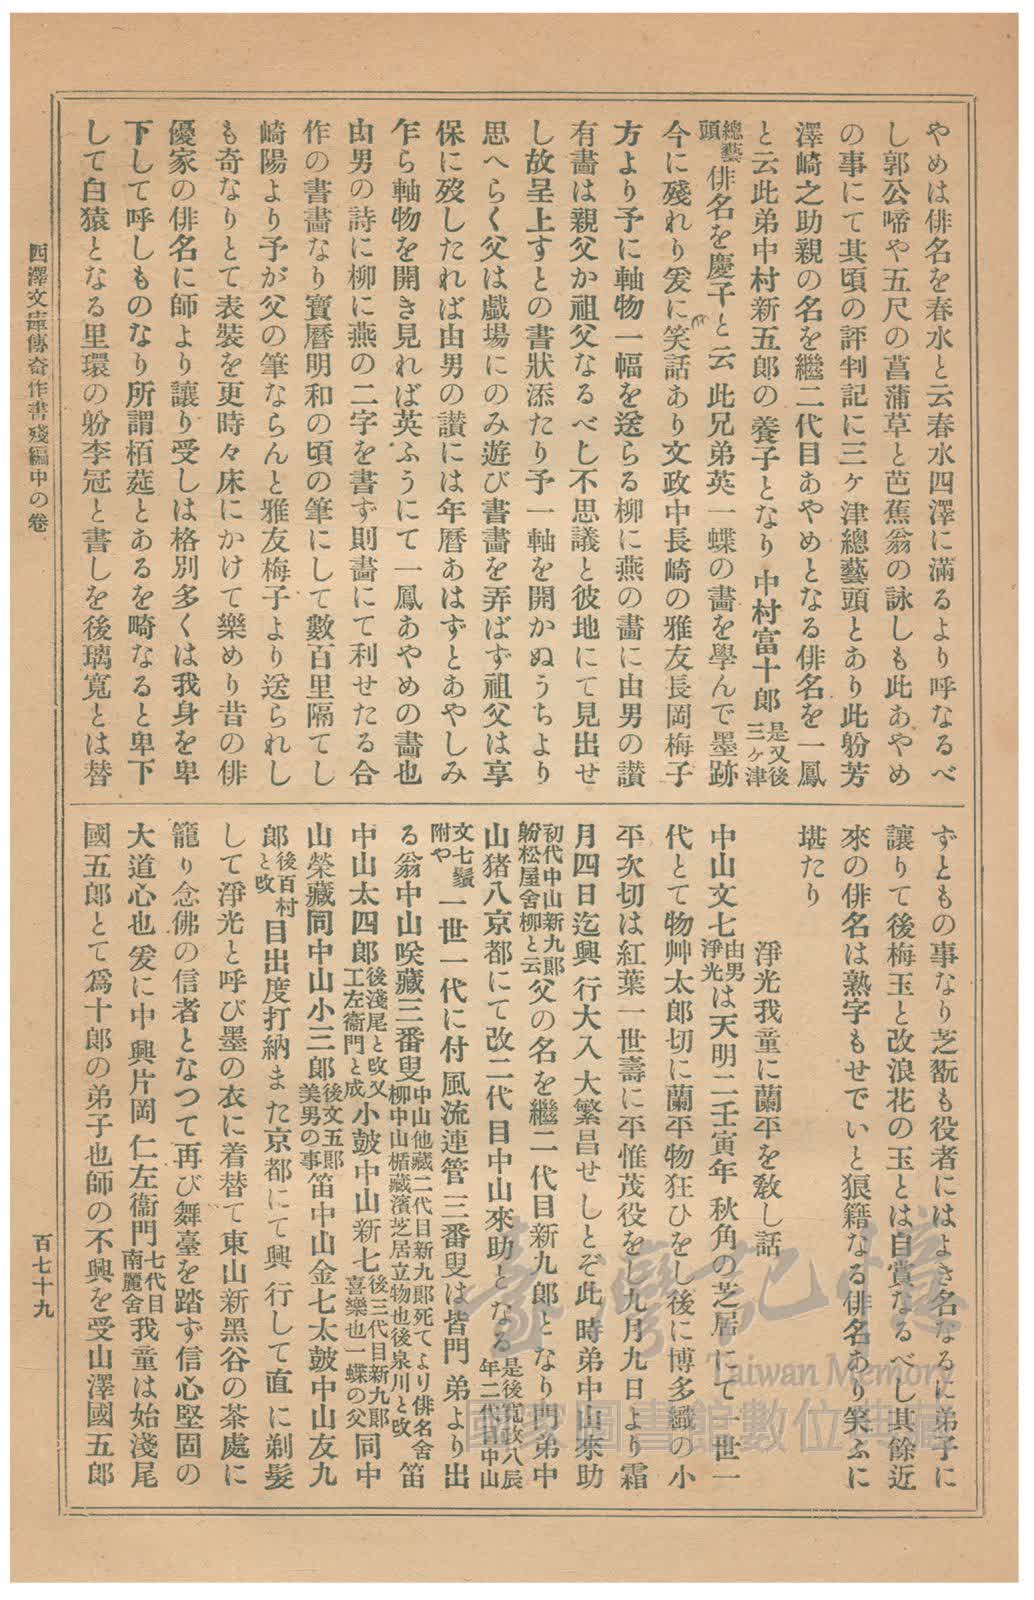 やめは俳名を春水と云春水四澤に滿るより呼なるべ
し郭公啼や五尺の菖蒲草と芭蕉翁の詠しも此あやめ
の事にて其頃の評判記に三ヶ津總藝頭とあり此躮芳
澤崎之助親の名を繼二代目あやめとなる俳名を一鳳
と云此弟中村新五郎の養子となり中村富十郎是又後三ヶ津
總藝頭俳名を慶子と云此兄弟英一蝶の畵を學んで墨跡
今に殘れり爰に笑話あり文政中長崎の雅友長岡梅子
方より予に軸物一幅を送らる柳に燕の畵に由男の讃
有畵は親父か祖父なるべし不思議と彼地にて見出せ
し故呈上すとの書狀添たり予一軸を開かぬうちより
思へらく父は戯場にのみ遊び書畵を弄ばず祖父は享
保に歿したれば由男の讃には年曆あはずとあやしみ
乍ら軸物を開き見れば英ふうにて一鳳あやめの畵也
由男の詩に柳に燕の二字を書ず則畵にて利せたる合
作の書畵なり寶曆明和の頃の筆にして數百里隔てし
崎陽より予が父の筆ならんと雅友梅子より送られし
も奇なりとて表裝を更時々床にかけて樂めり昔の俳
優家の俳名に師より讓り受しは格別多くは我身を卑
下して呼しものなり所謂栢莚とあるを畸なると卑下
して白猿となる里環の躮李冠と書しを後璃寬とは替
ずともの事なり芝翫も役者にはよき名なるに弟子に
讓りて後梅玉と改浪花の玉とは自賞なるべし其餘近
來の俳名は熟字もせでいと狼籍なる俳名あり笑ふに
堪たり
淨光我童に蘭平を敎し話
中山文七由男淨光は天明二壬寅年秋角の芝居にて一世一
代とて物艸太郎切に蘭平物狂ひをし後に博多織の小
平次切は紅葉一世壽に平惟茂役をし九月九日より霜
月四日迄興行大入大繁昌せしとぞ此時弟中山來助
初代中山新九郎躮松屋舍柳と云父の名を繼二代目新九郎となり門弟中
山猪八京都にて改二代目中山來助となる是後寬政八辰年二代目中山
文七鬚附や一世一代に付風流連管三番叟は皆門弟より出
る翁中山咲藏三番叟中山他藏二代目新九郎死てより俳名舍柳中山楯藏濱芝居立物也後泉川と改笛
中山太四郎後淺尾と改又工左衞門と成小鼓中山新七後三代目新九郎喜樂也一蝶の父同中
山榮藏同中山小三郎後文五郎美男の事笛中山金七太鼓中山友九
郎後百村と改目出度打納また京都にて興行して直に剃髮
して淨光と呼び墨の衣に着替て東山新黑谷の茶處に
籠り念佛の信者となつて再び舞臺を踏ず信心堅固の
大道心也爰に中興片岡仁左衞門七代目南麗舍我童は始淺尾
國五郎とて爲十郎の弟子也師の不興を受山澤國五郎
西澤文庫傳奇作書殘編中の卷
百七十九
臺灣記憶
Taiwan Memory
國家圖書館數位典藏